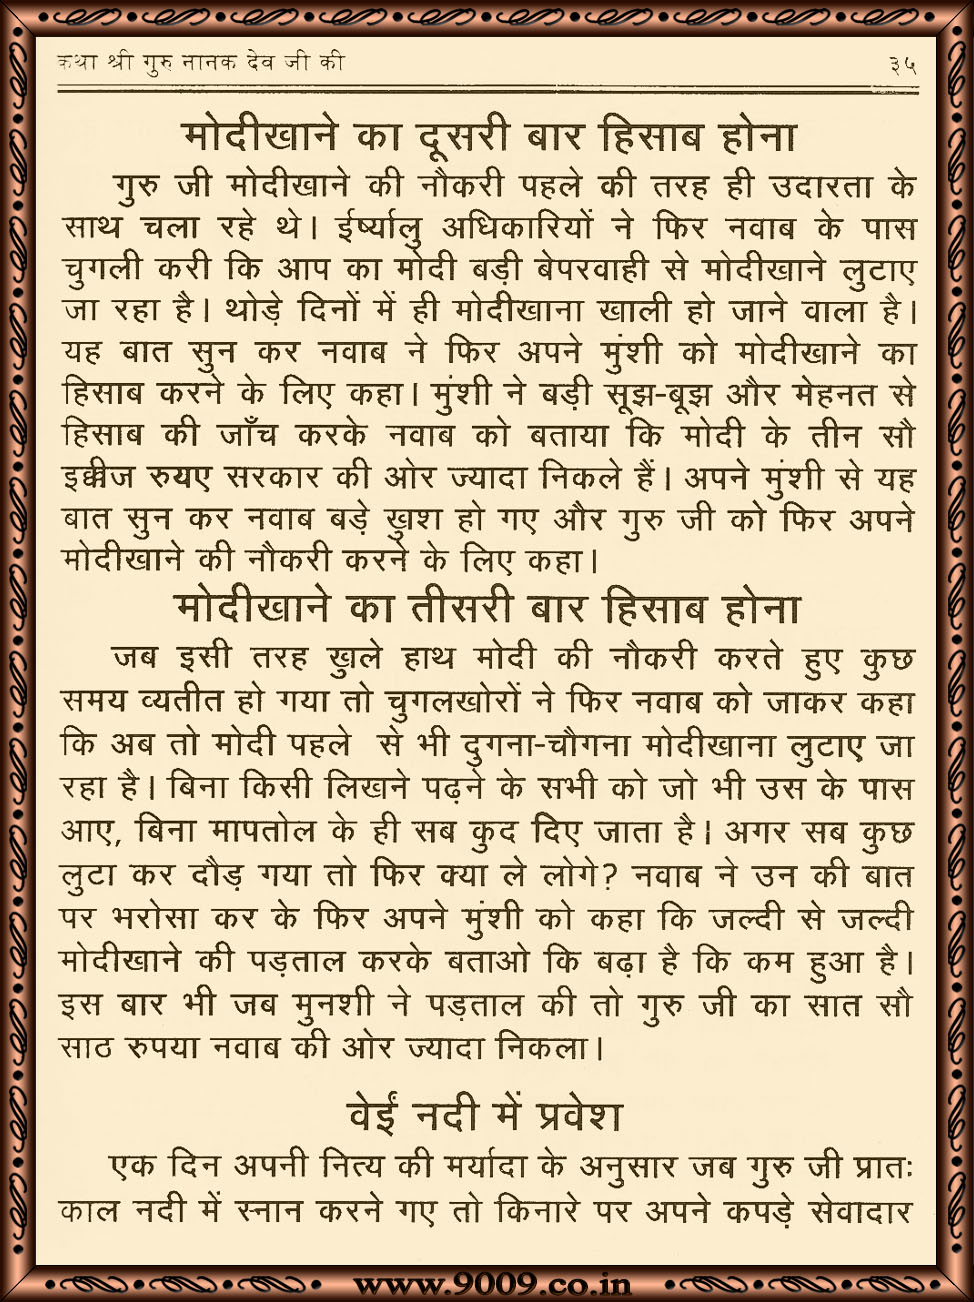 कथा श्री गुरु नानक देव जी की ३५
मोदीखाने का दूसरी बार हिसाब होना
गुरु जी मोदीखाने की नौकरी पहले की तरह ही उदारता के
साथ चला रहे थे। ईर्ष्यालु अधिकारियों ने फिर नवाब के पास
चुगली करी कि आप का मोदी बड़ी बेपरवाही से मोदीखाने लुटाए
जा रहा है। थोड़े दिनों में ही मोदीखाना खाली हो जाने वाला है।
यह बात सुन कर नवाब ने फिर अपने मुंशी को मोदीखाने का
हिसाब करने के लिए कहा। मुंशी ने बड़ी सूझ-बूझ और मेहनत से
हिसाब की जाँच करके नवाब को बताया कि मोदी के तीन सौ
इक्कीज रुयए सरकार की ओर ज्यादा निकले हैं। अपने मुंशी से यह
बात सुन कर नवाब बड़े खुश हो गए और गुरु जी को फिर अपने
मोदीखाने की नौकरी करने के लिए कहा।
मोदीखाने का तीसरी बार हिसाब होना
जब इसी तरह खुले हाथ मोदी की नौकरी करते हुए कुछ
समय व्यतीत हो गया तो चुगलखोरों ने फिर नवाब को जाकर कहा
कि अब तो मोदी पहले से भी दुगना-चौगना मोदीखाना लुटाए जा
रहा है। बिना किसी लिखने पढ़ने के सभी को जो भी उस के पास
आए, बिना मापतोल के ही सब कुद दिए जाता है। अगर सब कुछ
लुटा कर दौड़ गया तो फिर क्या ले लोगे? नवाब ने उन की बात
पर भरोसा कर के फिर अपने मुंशी को कहा कि जल्दी से जल्दी
मोदीखाने की पड़ताल करके बताओ कि बढ़ा है कि कम हुआ है।
इस बार भी जब मुनशी ने पड़ताल की तो गुरु जी का सात सौ
साठ रुपया नवाब की ओर ज्यादा निकला।
वेईं नदी में प्रवेश
एक दिन अपनी नित्य की मर्यादा के अनुसार जब गुरु जी प्रातः
काल नदी में स्नान करने गए तो किनारे पर अपने कपड़े सेवादार
www.9009.co.in